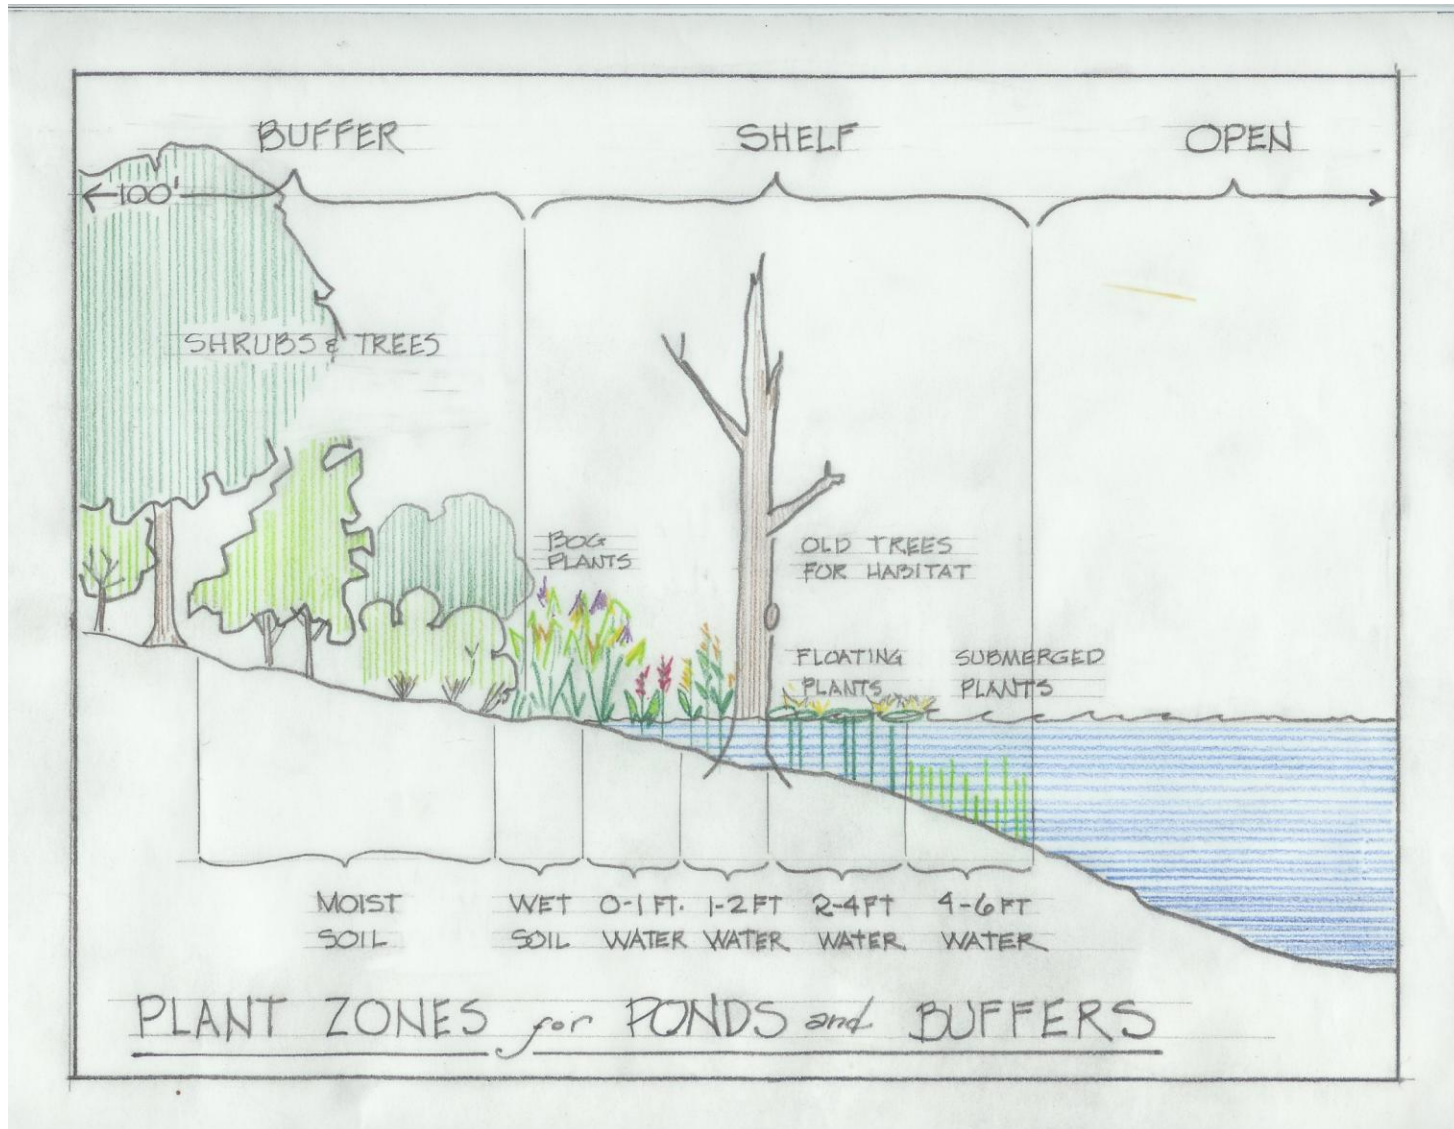 BUFFER
SHELF
OPEN
100'
SHRUBS & TREES
BOG
PLANTS
OLD TREES
FOR HABITAT
FLOATING
PLANTS
SUBMERGED
PLANTS
MOIST
SOIL
WET
SOIL
0-1 FT.
WATER
1-2 FT
WATER
2-4 FT
WATER
4-6 FT
WATER
PLANT ZONES for PONDS and BUFFERS